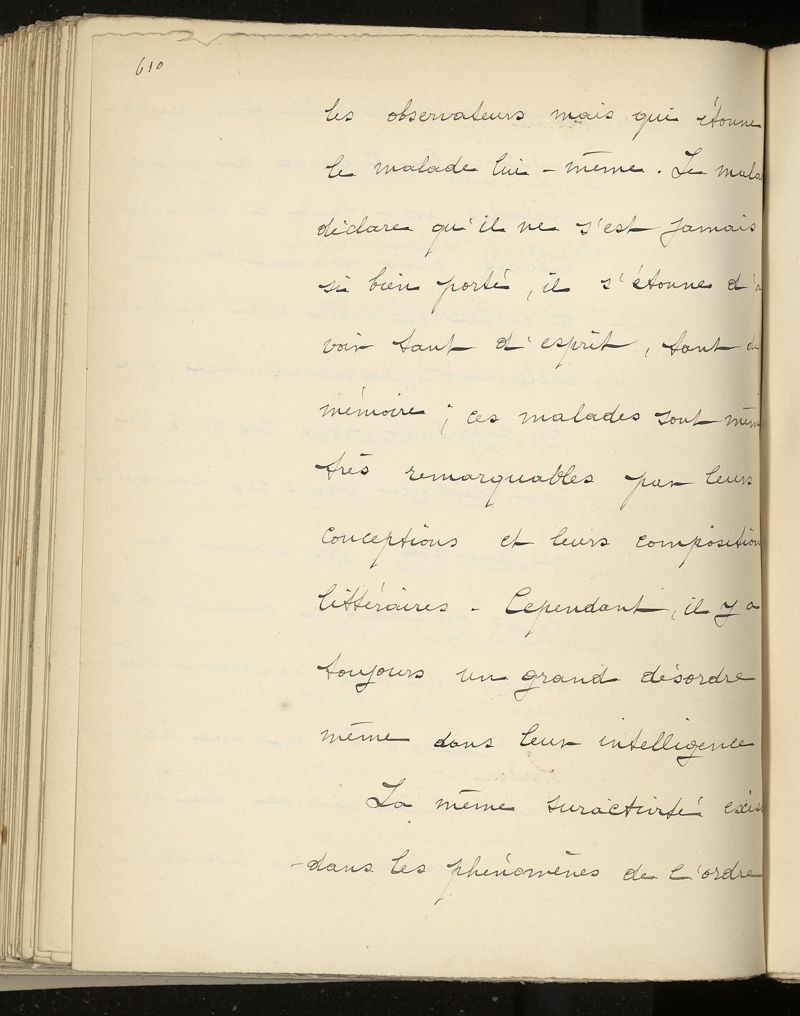 610
les observateurs mais qui étonne
le malade lui-même. Le mala
déclare qu'il ne s'est jamais
si bien porté, il s'étonne d'a
voir tant d'esprit, tant de
mémoire ; ces malades sont mêm
très remarquables par leurs
conceptions et leurs composition
littéraires - Cependant, il y a
toujours un grand désordre
même dans leur intelligence
La même suractivité exis
-dans les phénomènes de l'ordre